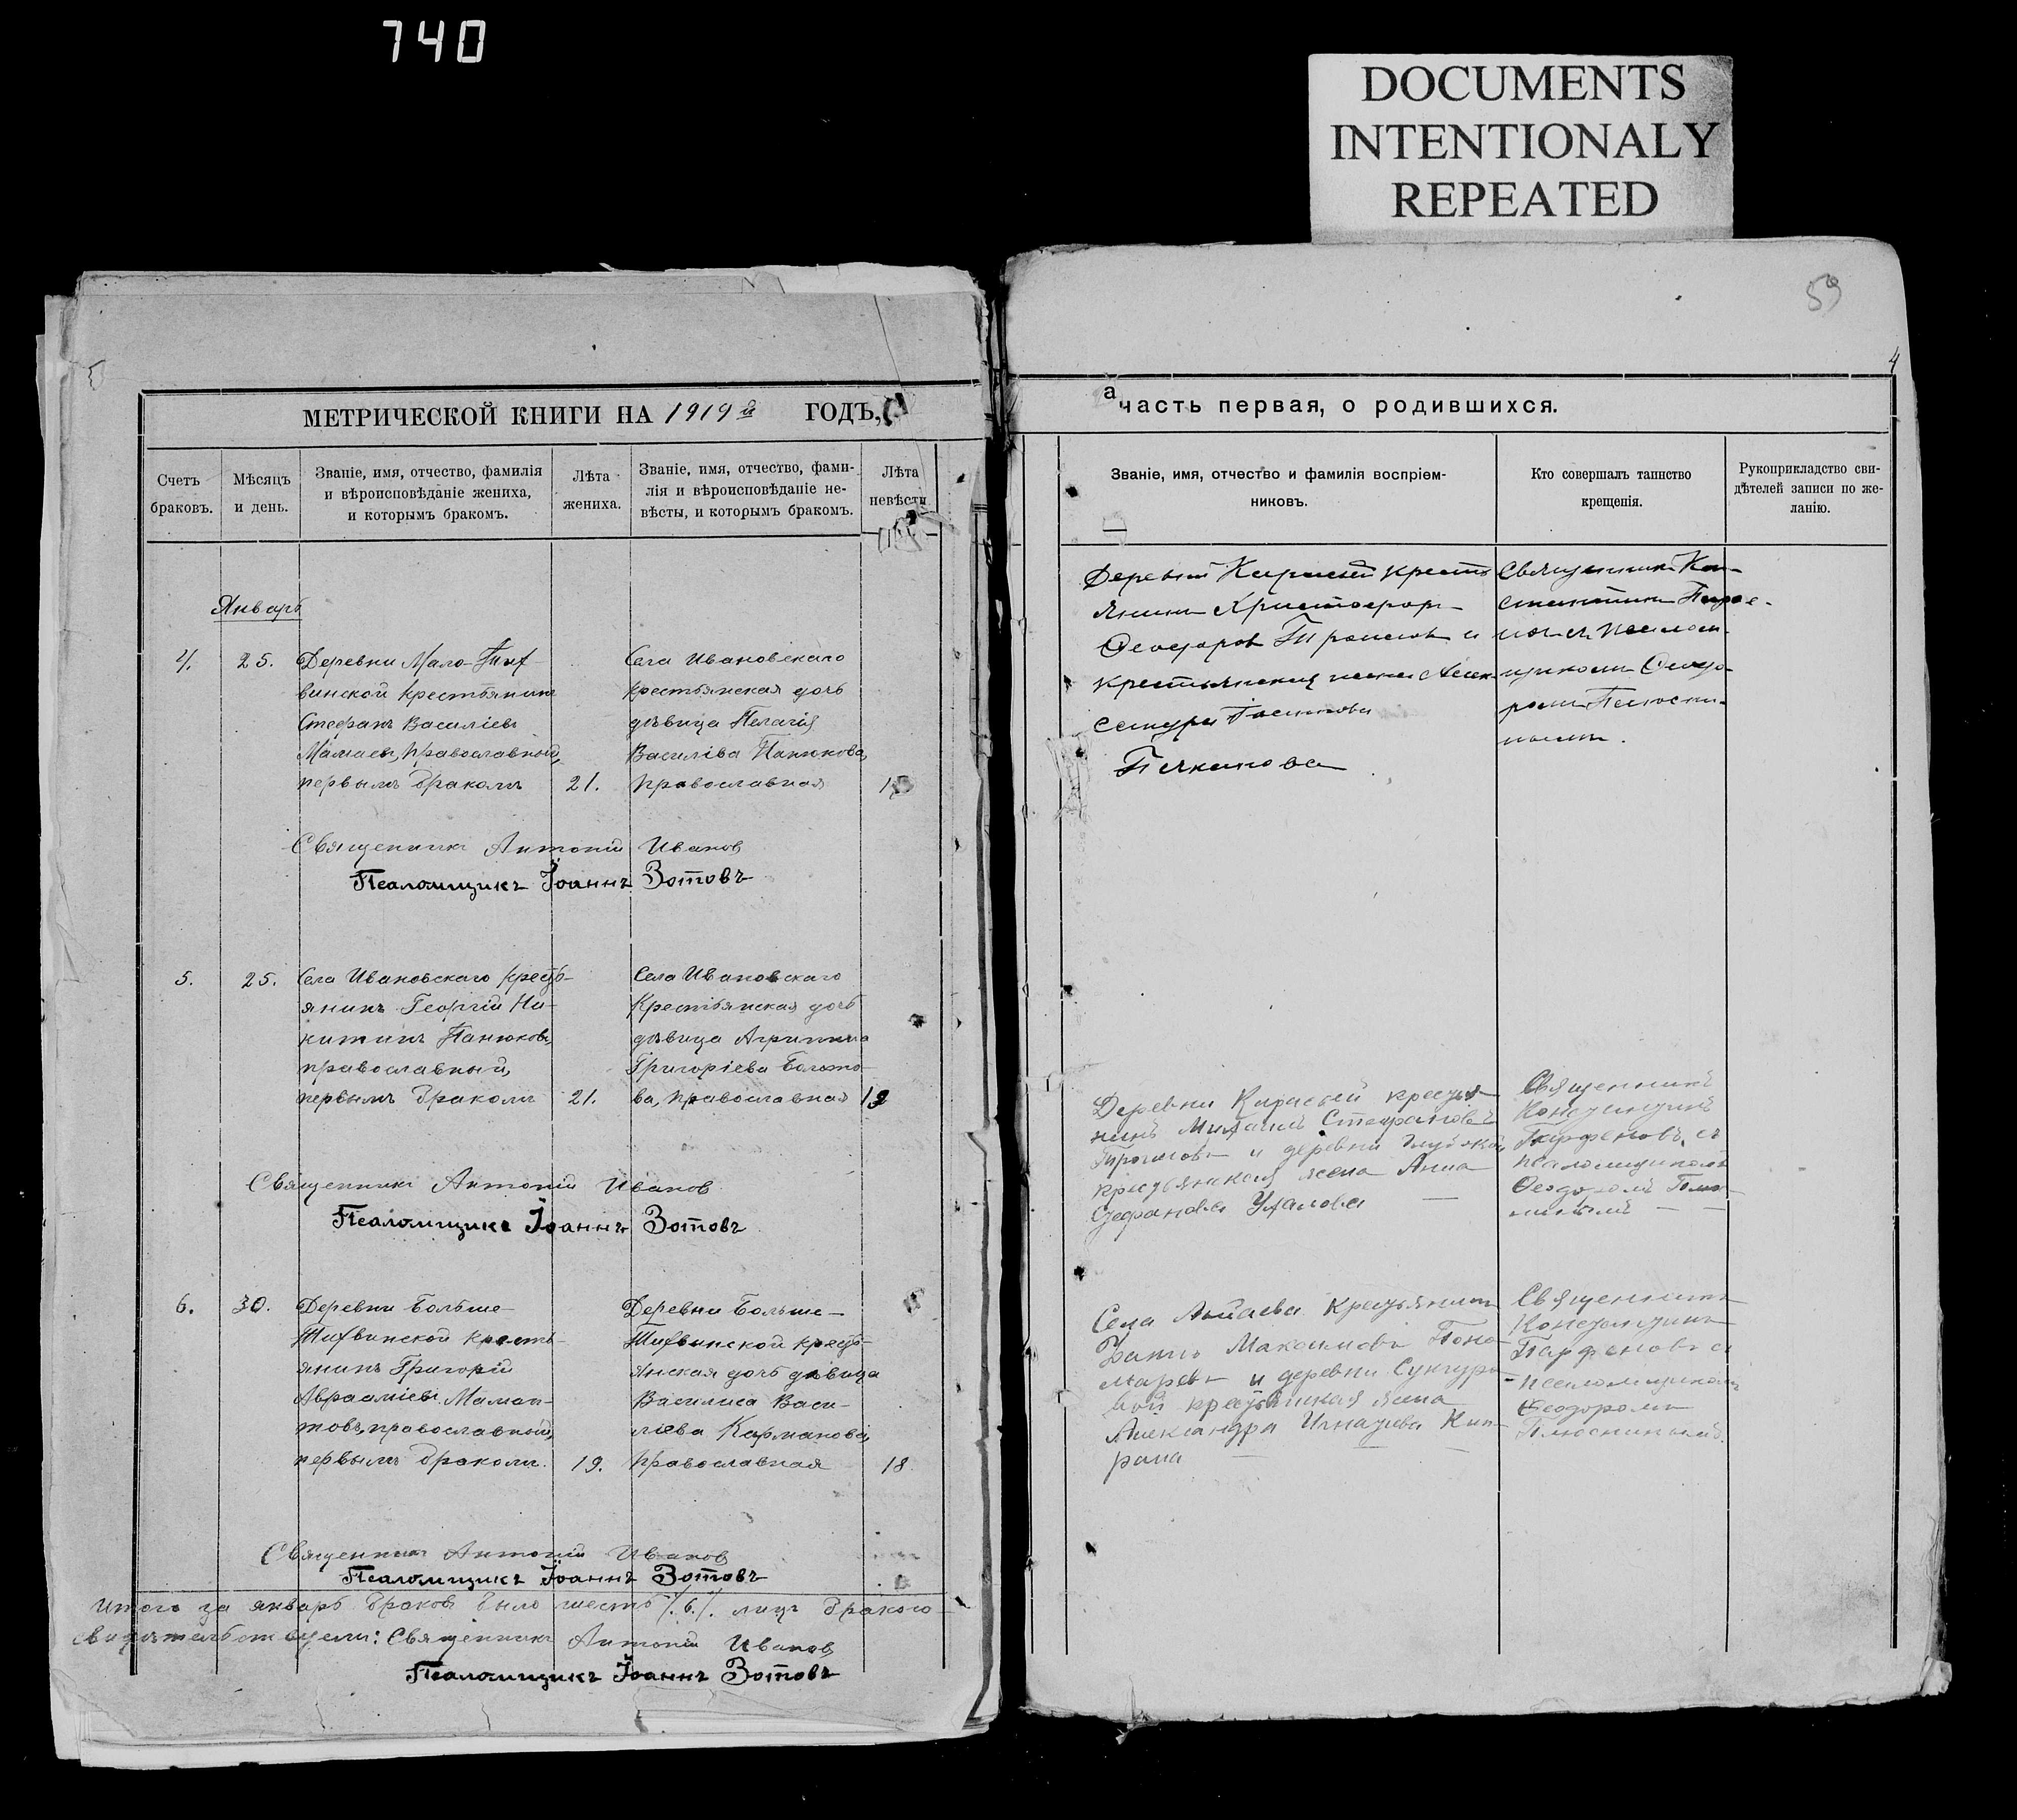 740
DOCUMENTS
INTENTIONALY
REPEATED
МЕТРИЧЕСКОЙ КНИГИ НА 1919й ГОДЪ,
Счетъ
браковъ.
Мѣсяцъ
и день.
Званіе, имя, отчество, фамилія
и вѣроисповѣданіе жениха,
и которымъ бракомъ.
Лѣта
жениха.
Званіе, имя, отчество, фами-
лія и вѣроисповѣданіе не-
вѣсты, и которымъ бракомъ.
Лѣта
невѣсты
Январь
4.
25.
Деревни Мало-Тих-
винской крестьянинъ
Стефанъ Василіевъ
Мамаевъ, православный,
первымъ бракомъ
21.
Села Ивановскаго
крестьянская дочь
дѣвица Пелагія
Василіева Панюкова,
православная
Священникъ Антоній Иванов
Псаломщикъ Іоаннъ Зотовъ
5.
25.
Села Ивановскаго кресть-
янинъ Георгій Ни-
китинъ Панюковъ,
православный,
первымъ бракомъ
21.
Села Ивановскаго
Крестьянская дочь
дѣвица Агриппина
Григоріева
ва, православная
Священникъ Антоній Иванов
Псаломщикъ Іоаннъ Зотовъ
6.
30.
Деревни Больше-
Тихвинской кресть-
янинъ Григорій
Авраміевъ Маман-
товъ, православный,
первымъ бракомъ.
19.
Деревни Больше-
Тихвинской кресть-
янская дочь дѣвица
Василиса Васи-
ліева Карманова,
православная
18.
Священникъ Антоній Иванов
Псаломщикъ Іоаннъ Зотовъ
Итого за январь браков было шесть /.6./. лиц
Священникъ Антоній Иванов
Псаломщикъ Іоаннъ Зотовъ
59
4
часть первая, о родившихся.
Званіе, имя, отчество и фамилія воспріем-
никовъ.
Кто совершалъ таинство
крещенія.
Рукоприкладство сви-
дѣтелей записи по же-
ланію.
Деревни крестъ
янинъ Христофоръ
Ѳеодоровъ и
крестьянская жена Алек-
сандра
Священникъ Кон-
стантинъ Парѳе-
новъ съ псалом-
щикомъ Ѳеодо-
ромъ Плюсни-
нымъ.
Деревни крестья-
нинъ Михаилъ Стефановъ
и деревни
крестьянская жена Анна
Стефанова Ухалова
Священникъ
Константинъ
Парфеновъ, съ
псаломщикомъ
Ѳеодоромъ Плюс-
нинымъ
Села крестьянинъ
Максимовъ Поно-
маревъ и деревни Сунгуро-
вой крестьянская жена
Александра Игнатьева
Священникъ
Константинъ
Парфеновъ съ
псаломщикомъ
Ѳеодоромъ
Плюснинымъ.